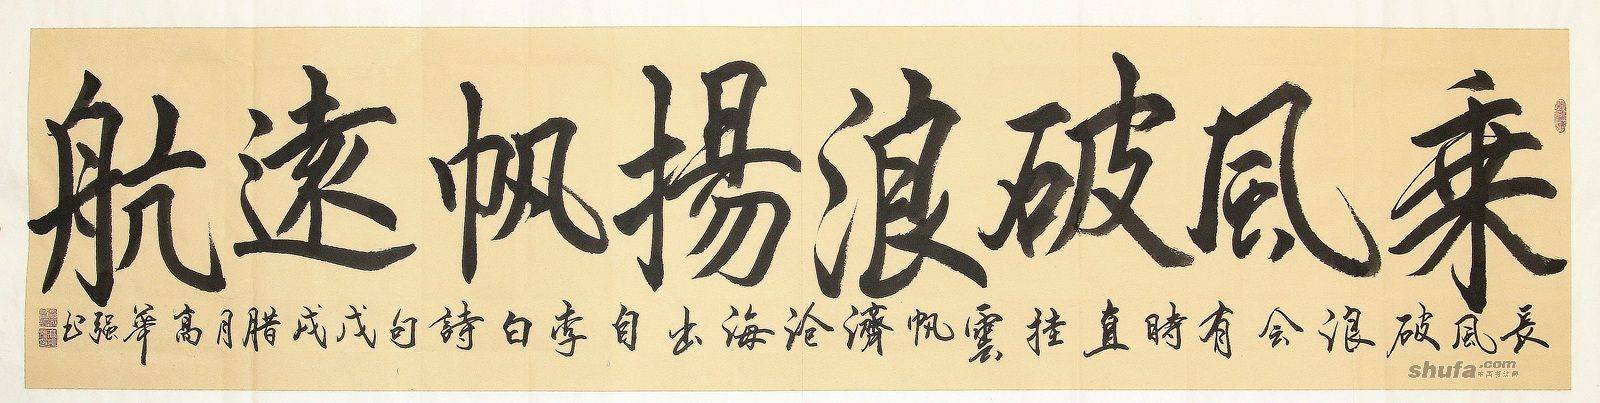 乗風破浪揚帆遠航
長風破浪会有時直挂雲帆濟沧海出自李白詩句戊戌腊月高華强书
shufa.com